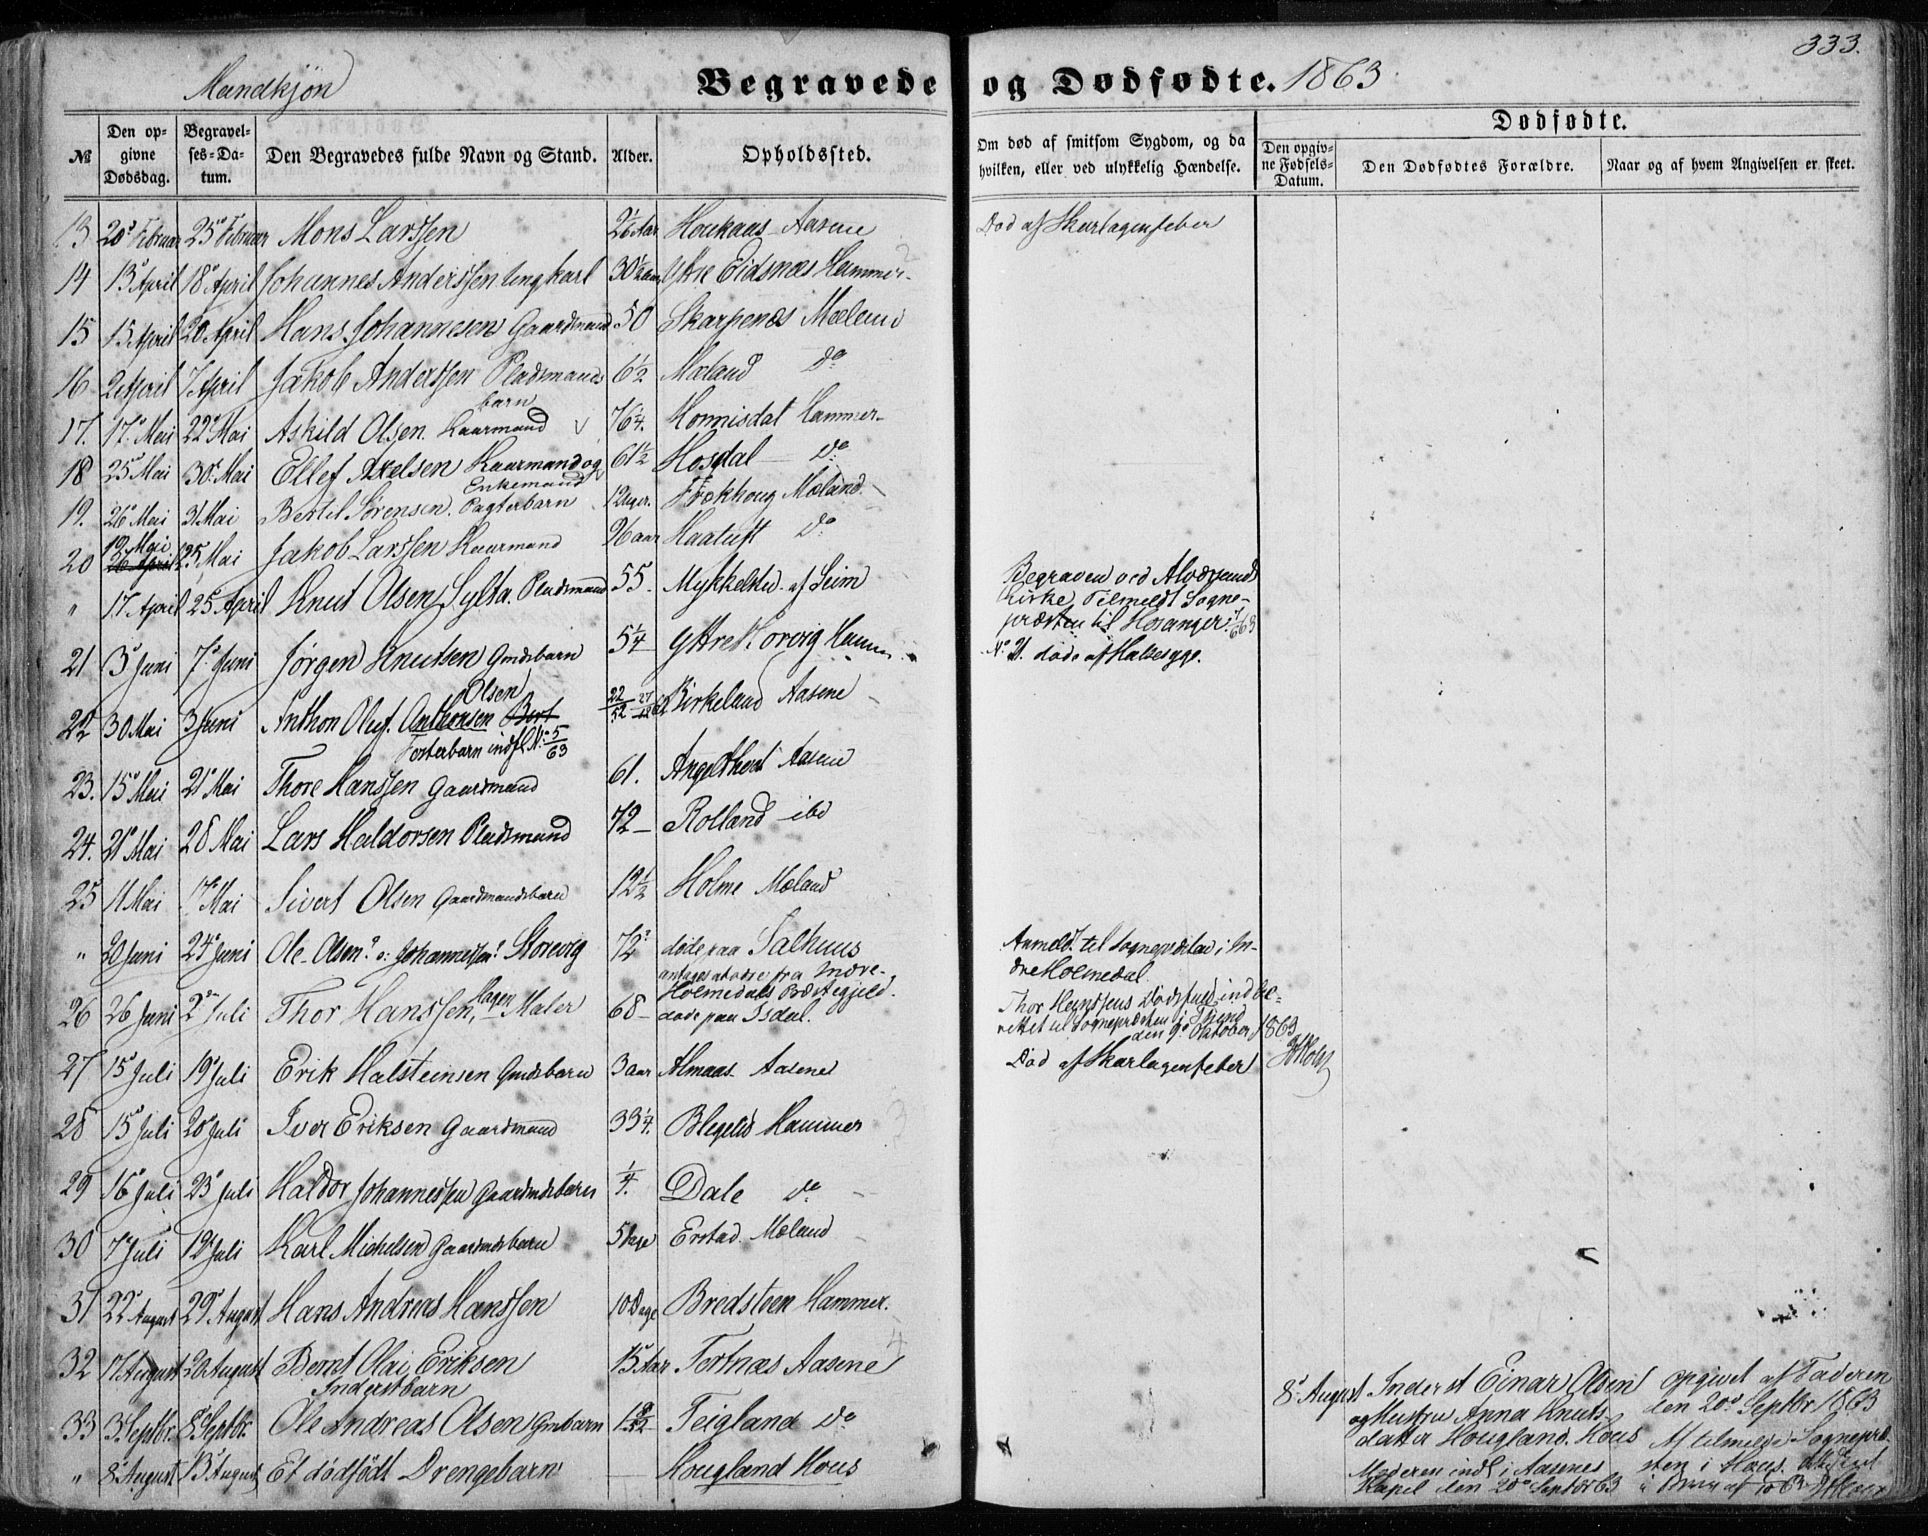 333.
Mandkjøn
Begravede og Dødfødte. 1863
Dødfødte.
№
Den opgivne Dødsdag.
Begravelses-Datum.
Den Begravedes fulde Navn og Stand.
Alder.
Opholdssted.
Om død af smitsom Sygdom, og da hvilken, eller ved ulykkelig Hændelse.
Den opgivne Fødsels-Datum.
Den Dødfødtes Forældre.
Naar og af hvem Angivelsen er skeet.
13 20de Februar 25de Februar Mons Larssen 2 Aar Houkaas Aasene Død af Skarlagensfeber
14 13de April 18de April Johannes Anderssen Ungkarl 30 Ytre Eidsnæs Hammer
15 15 April 20 April Hans Johannesen Gaardmand 50 Skarpenæs Mæland
16 2 April 7 April Jakob Anderssen Pladsmands barn 6½ Mæland do
17. 17de Mai 22de Mai Askild Olsen. Kaarmand 76¼ Monnisdal Hammer
18 25de Mai 30de Mai Ellef Axelsen Kaarmand og Enkemand 61½ Hosdal do
19. 26de Mai 31 Mai Bertil Sørensen. 12 uger. Frækhoug Mæland
20 19 Mai 25 Mai Jakob Larssen Kaarmand 96 aar Haatuft do
" 17 April 25 April Knut Olsen Sylta. Pladsmand 55. Mykkelstad af Seim Begraven ved Alversunds
Kirke Tilmeldt Sogne-
præsten til Hosanger
21 3de Juni 7de Juni Jørgen Knutsen Gmdsbarn 5¼ Ytre Horvig Hammer No 21. døde af Halsesyge.
22 30 Mai 3 Juni Anthon Oluf. Anthonsen Olsen Fosterbarn indfl. No 5/63 22/52 Birkeland Aasene
23. 15de Mai 21de Mai Thore Hanssen Gaardmand 61. Angelthveit Aasene
24. 21de Mai 28 Mai Lars Haldorsen Pladsmand 72 Rolland ibd
25 11 Mai 17de Mai Sivert Olsen Gaardmandsbarn 12½ Holme Mæland
" 20 Juni 24de Juni Ole Olsen? o: Johannessen? Storevig 72? døde paa Salhuus
antages at være fra Indre-
Holmedals Præstegjeld. Anmeldt til Sognepræsten i In-
dre Holmedal.
26 26 Juni 2de Juli Thor Hanssen, Hagen Maler 68 døde paa Isdal. Thor Hanssens Dødsfald indbe-
rettet til Sognepræsten i
den 9de Oktober 1863
27 15de Juli 19de Juli Erik Halsteinsen Gmdsbarn 3 aar Almaas Aasene Død af Skarlagensfeber
28 15de Juli 20de Juli Iver Eriksen Gaardmand 33¼. Blegelid Hammer
29 16de Juli 23de Juli Haldor Johannessen Gaardmdsbarn ¼. Dale do
30 7de Juli 12de Juli Karl Mickelsen Gaardmdsbarn 5 Dage Erstad. Mæland
31 22de August 29de August Hans Andreas Hanssen 10 Dage Bredsteen Hammer.
32 17 August 20 August Bernt Olai Eriksen Inderstbarn Tertnæs Aasene
33 3 Septbr. 8 Septbr. Ole Andreas Olsen Gmdbarn Teigland do
" 8de August 13de August Et dødfødt Drengebarn Hougland Hous
8de August Inderst Einar Olsen
og Hustru Anna Knuts-
datter Hougland. Hous
Moderen indl. i Aasenes
Kapel den 20de Septbr 63
opgivet af Faderen
den 20de Septbr 1863
At tilmeldes Sognepræ-
sten i Hous.